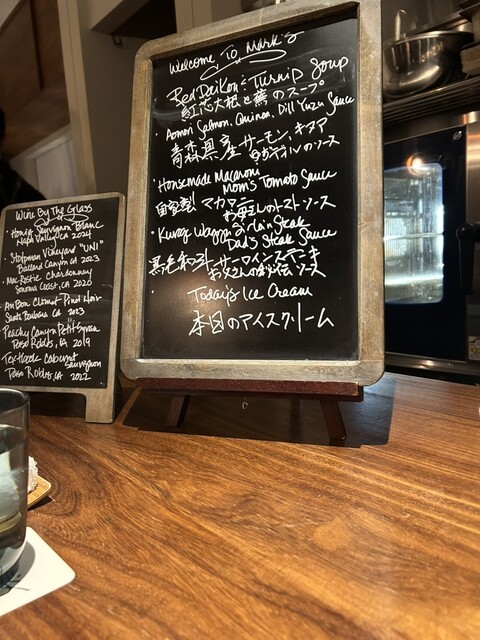 Wine By The Glass
Honig Sauvignon Blanc
Napa Valley, CA 2024
Stolpman Vineyard "UNI"
Ballard Canyon, CA 2023
MacRostie Chardonnay
Sonoma Coast, CA 2020
Au Bon Climat Pinot Noir
Santa Barbara CA 2023
Peachy Canyon Petit Syrah
Paso Robles, CA 2019
Textbook Cabernet
Sauvignon
Paso Robles, CA 2022
Welcome To Mark's
Red Daikon & Turnip Soup
紅芯大根と蕪のスープ
・Aomori Salmon, Quinoa, Dill Yuzu Sauce
青森県産サーモン、キヌア
ソース
・Homemade Macaroni
Mom's Tomato Sauce
自家製マカロニ
お母さんのトマトソース
・Kuroge Wagyu Sirloin Steak
Dad's Steak Sauce
黒毛和牛サーロインステーキ
お父さんの秘伝ソース
・Today's Ice Cream
本日のアイスクリーム